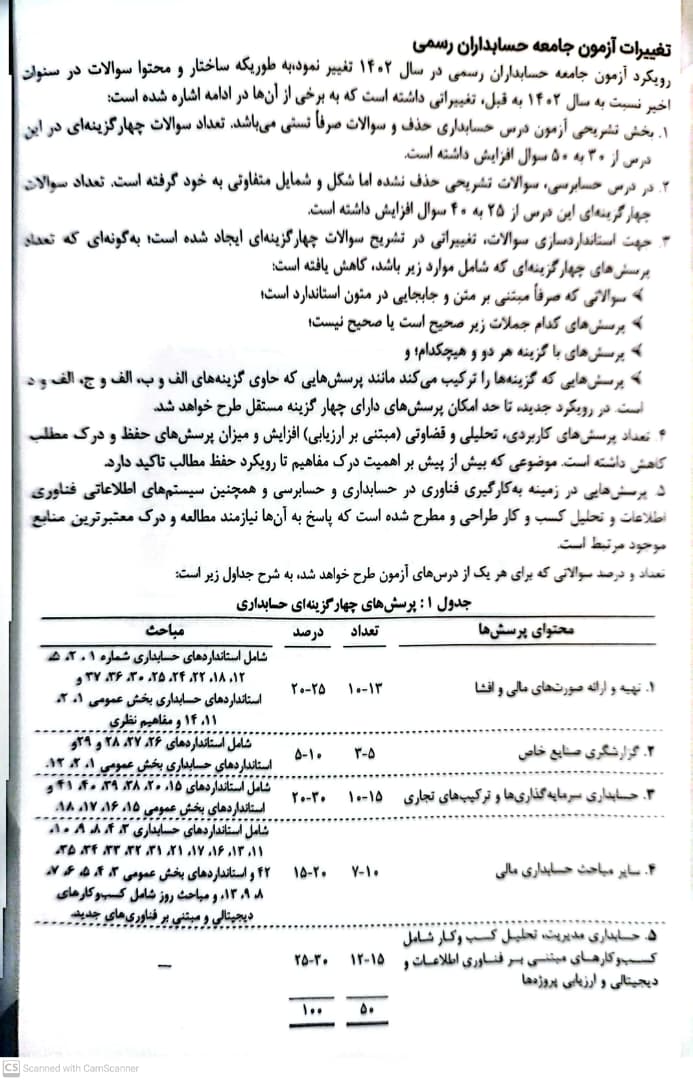 تغییرات آزمون جامعه حسابداران رسمی
رویکرد آزمون جامعه حسابداران رسمی در سال ۱۴۰۲ تغییر نموده،به طوریکه ساختار و محتوا سوالات در سنوات
اخیر نسبت به سال ۱۴۰۲ به قبل، تغییراتی داشته است که به برخی از آن‌ها در ادامه اشاره شده است:
۱. بخش تشریحی آزمون درس حسابداری حذف و سوالات صرفاً تستی می‌باشد. تعداد سوالات چهارگزینه‌ای در این
درس از ۳۰ به ۵۰ سوال افزایش داشته است.
۲. در درس حسابرسی، سوالات تشریحی حذف نشده اما شکل و شمایل متفاوتی به خود گرفته است. تعداد سوالات
چهارگزینه‌ای این درس از ۲۵ به ۴۰ سوال افزایش داشته است.
۳. جهت استانداردسازی سوالات، تغییراتی در تشریح سوالات چهارگزینه‌ای ایجاد شده است؛ به‌گونه‌ای که تعداد
پرسش‌های چهارگزینه‌ای که شامل موارد زیر باشد، کاهش یافته است:
⮜ سوالاتی که صرفاً مبتنی بر متن و جابجایی در متون استاندارد است؛
⮜ پرسش‌های کدام جملات زیر صحیح است یا صحیح نیست؛
⮜ پرسش‌های با گزینه هر دو و هیچکدام؛ و
⮜ پرسش‌هایی که گزینه‌ها را ترکیب می‌کند مانند پرسش‌هایی که حاوی گزینه‌های الف و ب، الف و ج، الف و د
است. در رویکرد جدید، تا حد امکان پرسش‌های دارای چهار گزینه مستقل طرح خواهد شد.
۴. تعداد پرسش‌های کاربردی، تحلیلی و قضاوتی (مبتنی بر ارزیابی) افزایش و میزان پرسش‌های حفظ و درک مطلب
کاهش داشته است. موضوعی که بیش از پیش بر اهمیت درک مفاهیم تا رویکرد حفظ مطالب تاکید دارد.
۵. پرسش‌هایی در زمینه به‌کارگیری فناوری در حسابداری و حسابرسی و همچنین سیستم‌های اطلاعاتی فناوری
اطلاعات و تحلیل کسب و کار طراحی و مطرح شده است که پاسخ به آن‌ها نیازمند مطالعه و درک معتبرترین منابع
موجود مرتبط است.
تعداد و درصد سوالاتی که برای هر یک از درس‌های آزمون طرح خواهد شد، به شرح جداول زیر است:
جدول ۱: پرسش‌های چهارگزینه‌ای حسابداری
محتوای پرسش‌ها تعداد درصد مباحث
۱. تهیه و ارائه صورت‌های مالی و افشا ۱۰-۱۳ ۲۰-۲۵
شامل استانداردهای حسابداری شماره ۱، ۲، ۵،
۱۲، ۱۸، ۲۲، ۲۴، ۲۵، ۳۰، ۳۶، ۳۷ و
استانداردهای حسابداری بخش عمومی ۱، ۲،
۱۱، ۱۴ و مفاهیم نظری
۲. گزارشگری صنایع خاص ۳-۵ ۵-۱۰
شامل استانداردهای ۲۶، ۲۷، ۲۸ و ۲۹و
استانداردهای حسابداری بخش عمومی ۱، ۲، ۱۲.
۳. حسابداری سرمایه‌گذاری‌ها و ترکیب‌های تجاری ۱۰-۱۵ ۲۰-۳۰
شامل استانداردهای ۱۵، ۲۰، ۳۸، ۳۹، ۴۰، ۴۱ و
استانداردهای بخش عمومی ۱۵، ۱۶، ۱۷، ۱۸.
۴. سایر مباحث حسابداری مالی ۷-۱۰ ۱۵-۲۰
شامل استانداردهای حسابداری ۳، ۴، ۸، ۹، ۱۰،
۱۱، ۱۳، ۱۶، ۱۷، ۲۱، ۳۱، ۳۲، ۳۳، ۳۴، ۳۵،
۴۲ و استانداردهای بخش عمومی ۳، ۴، ۵، ۶، ۷،
۸، ۹، ۱۳، و مباحث روز شامل کسب‌وکارهای
دیجیتالی و مبتنی بر فناوری‌های جدید.
۵. حسابداری مدیریت، تحلیل کسب وکار شامل
کسب‌وکارهای مبتنی بر فناوری اطلاعات و ۱۲-۱۵ ۲۵-۳۰ —
دیجیتالی و ارزیابی پروژه‌ها
۵۰ ۱۰۰
CS Scanned with CamScanner